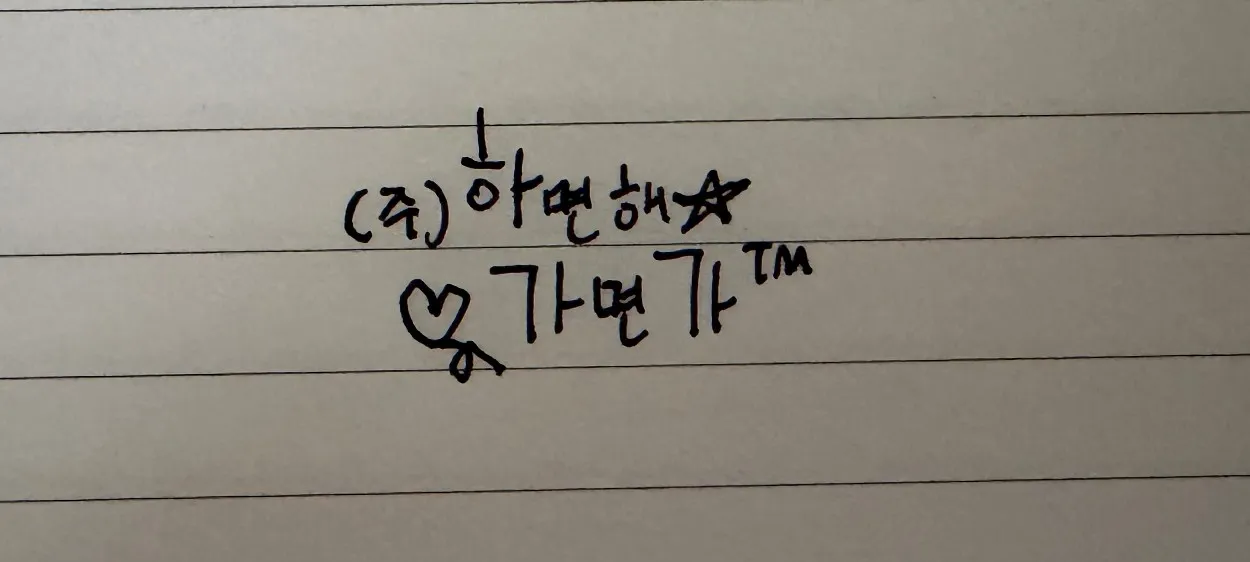 (주)하면해☆
♡가면가™